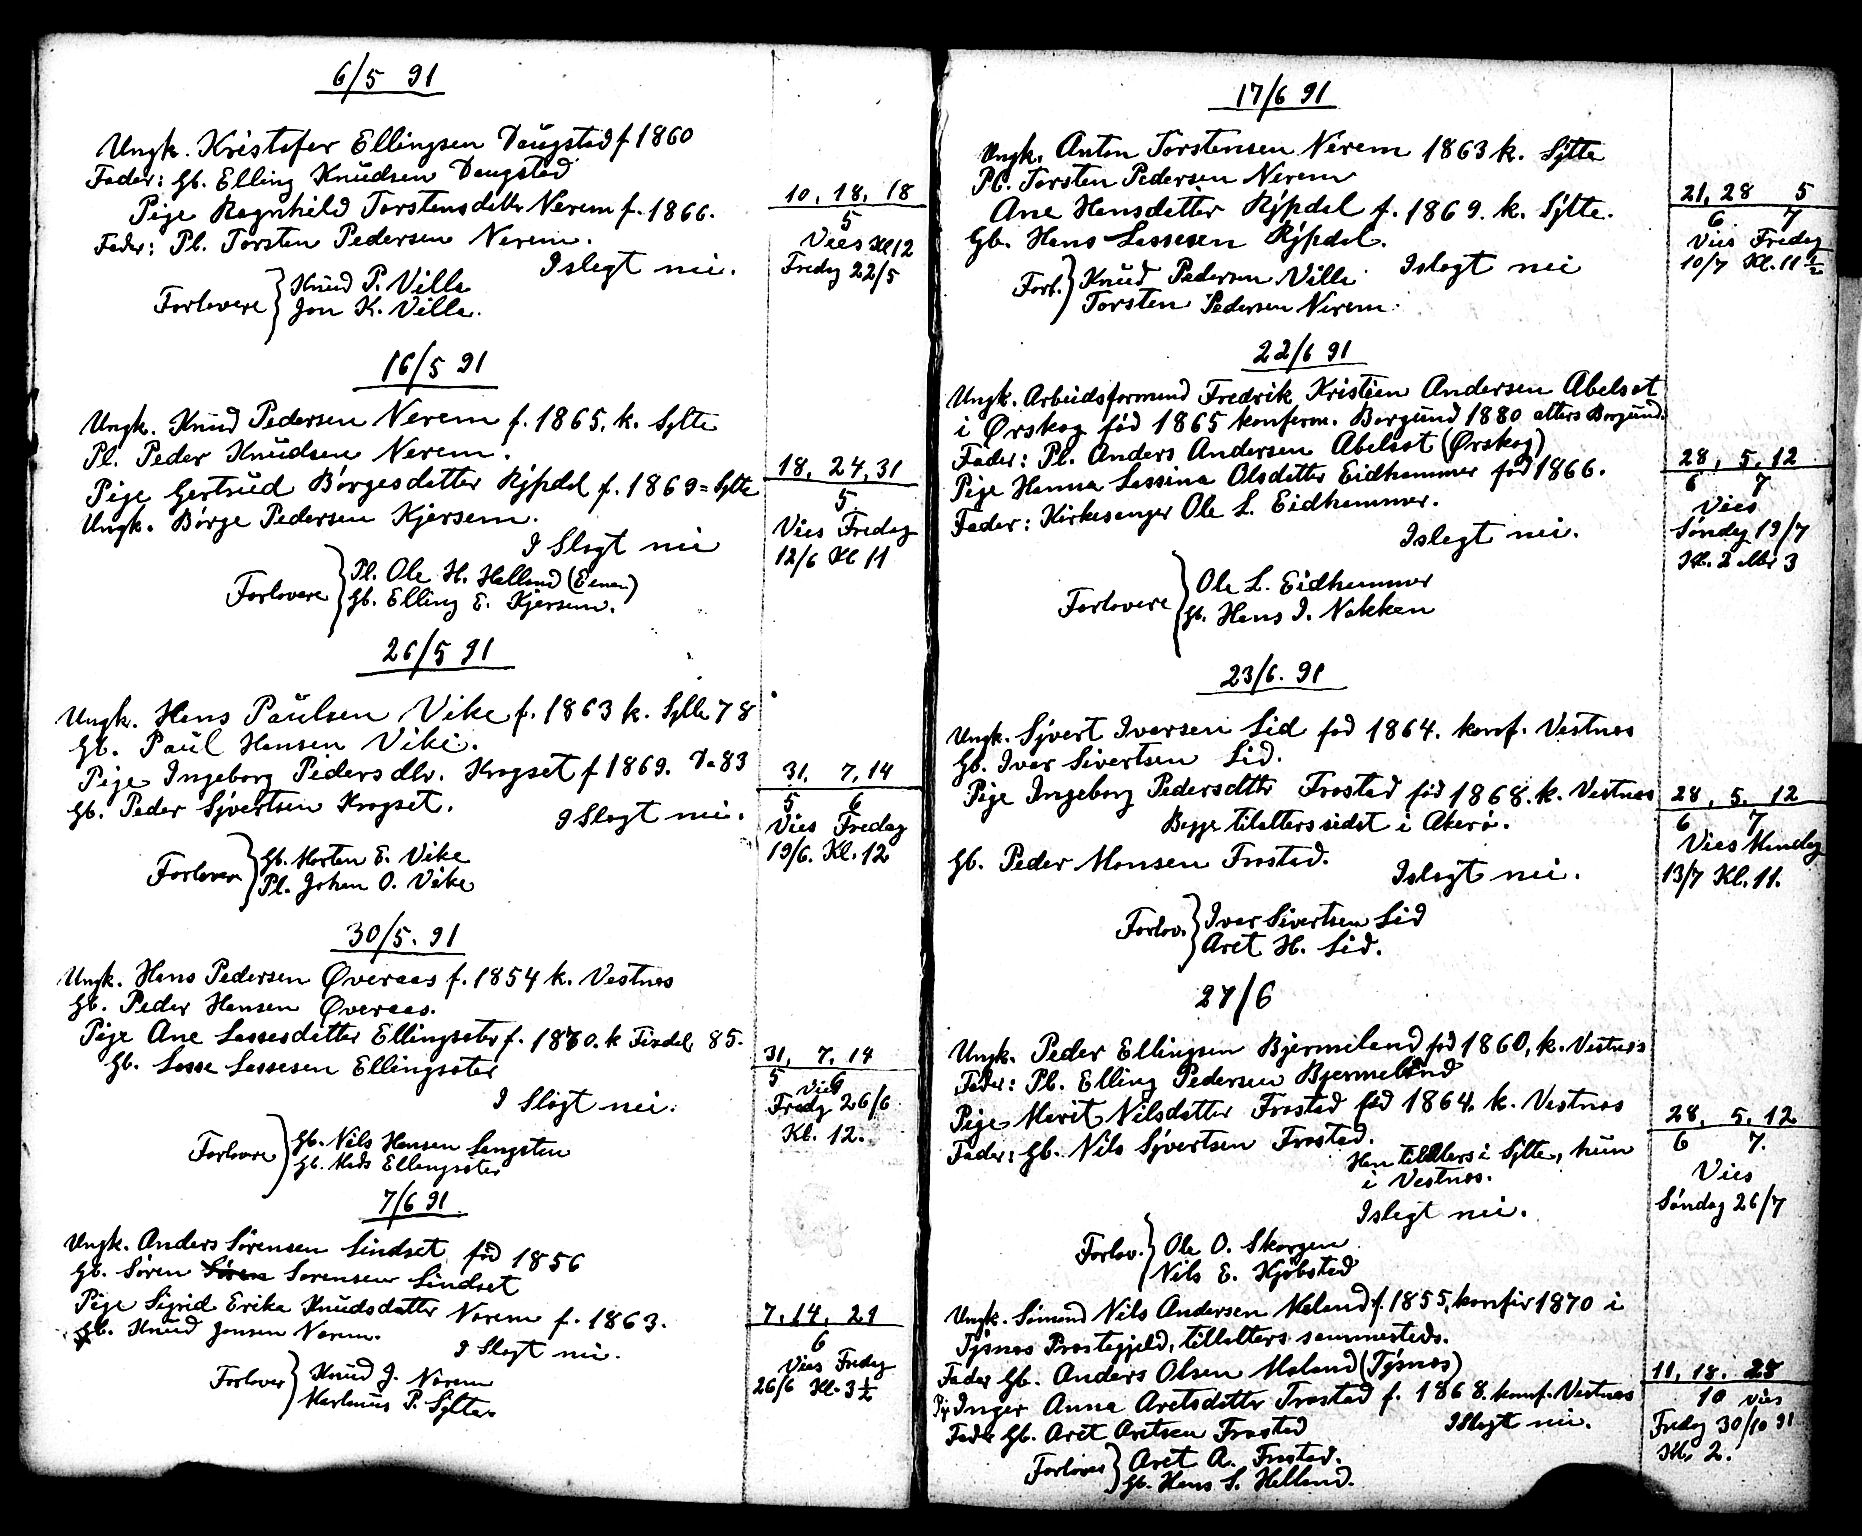 6/5 91
Ungk. Kristofer Ellingsen Daugstad f 1860
Fader: Gb. Elling Knudsen Daugstad
Pige Ragnhild Torstensdatter Nerem f. 1866.
Fader: Pl. Torsten Pedersen Nerem.
Islegt nei.
Forlovere } Knud P. Villa
Jon K. Villa.
10, 18, 18
5
Vies Kl 12
Fredag 22/5
16/5 91
Ungk. Knud Pedersen Nerem f. 1865, k. Sylte
Pl. Peder Knudsen Nerem.
Pige Gertrud Børgesdatter Rypdal f. 1869 = Sylte
Ungk. Børge Pedersen Kjersem.
I Slegt nei
Forlovere } Pl. Ole H. Helland
Gb. Elling E. Kjersem.
18, 24, 31
5
Vies Fredag
12/6 Kl 11
26/5 91
Ungk. Hans Paulsen Vike f. 1863 k. Sylte 78
Gb. Paul Hansen Vike.
Pige Ingeborg Pedersdtr. Krogset f 1869. Do 83
Gb. Peder Sjvertsen Krogset.
I Slegt nei.
Forlovere } Gb. Morten E. Vike
Pl. Johan O. Vike
31, 7, 14
5 6
Vies Fredag
19/6. Kl. 12
30/5. 91
Ungk. Hans Pedersen Øveraas f. 1854 k. Vestnes
Gb. Peder Hansen Øveraas.
Pige Ane Lassesdatter Ellingsæter f. 1870. k 85.
Gb. Lasse Lassesen Ellingsæter
I Slegt nei.
Forlovere } Gb. Nils Hansen Langsten
Gb. Mads Ellingsæter
31, 7, 14
5 6
Vies
Fredag 26/6
Kl. 12.
7/6 91
Ungk. Anders Sørensen Lindset, fød 1856
Gb. Søren Søren Sørensen Lindset
Pige Sigrid Erika Knudsdatter Nerem f. 1863.
Gb. Knud Jonsen Nerem.
I Slegt nei.
Forlover } Knud J. Nerem
Martinus P. Sylte.
7, 14, 21
6
Vies Fredag
26/6 Kl. 3½
17/6 91
Ungk. Anton Torstensen Nerem 1863 k. Sylte
Pl. Torsten Pedersen Nerem
Ane Hansdatter Rypdal f. 1869. k. Sylte.
Gb. Hans Lassesen Rypdal.
Islegt nei
Forl. } Knud Pedersen Villa
Torsten Pedersen Nerem.
21, 28 5
6 7
Vies Fredag
10/7 Kl. 11½
22/6 91
Ungk. Arbeidsformand Fredrik Kristian Andersen Abelset
i Ørskog fød 1865 konferm. Borgund 1880 atters Borgund.
Fader: Pl. Anders Andersen Abelset (Ørskog)
Pige Hanna Lassina Olsdatter Eidhammer fød 1866.
Fader: Kirkesanger Ole L. Eidhammer.
Islegt nei.
Forlovere } Ole L. Eidhammer
Gb. Hans I. Nakken
28, 5, 12
6 7
Vies
Søndag 19/7
Kl. 2 eller 3
23/6. 91
Ungk. Sjvert Iversen Lid fød 1864. konf. Vestnes
Gb. Iver Sivertsen Lid.
Pige Ingeborg Pedersdtr Frostad fød 1868. k. Vestnes
Begge tilatters sidst i Akerø.
Gb. Peder Monsen Frostad.
Islegt nei.
Forlov. } Iver Sivertsen Lid
Aret H. Lid.
28, 5, 12
6 7
Vies Mandag
13/7 Kl. 11.
27/6
Ungk. Peder Ellingsen Bjermeland fød 1860, k. Vestnes
Fader: Pl. Elling Pedersen Bjermeland
Pige Marit Nilsdatter Frostad fød 1864. k. Vestnes
Fader: Gb. Nils Sjvertsen Frostad.
Han tilalters i Sylte, hun
i Vestnes.
Islegt nei.
Forlov. } Ole O. Skorgen
Nils E. Kjøbstad
28, 5, 12
6 7.
Vies
Søndag 26/7
Ungk. Sømand Nils Andersen Meland f. 1855, konfir 1870 i
Tysnes Prestegjeld, tilalters sammesteds.
Fader Gb. Anders Olsen Meland (Tysnes)
Pige Inger Anna Aretsdatter Frostad f. 1868. konf. Vestnes
Fader Gb. Aret Aretsen Frostad
I Slegt nei.
Forlover } Aret A. Frostad.
Gb. Hans S. Helland.
11, 18. 28
10 vies
Fredag 30/10 91
Kl. 2.